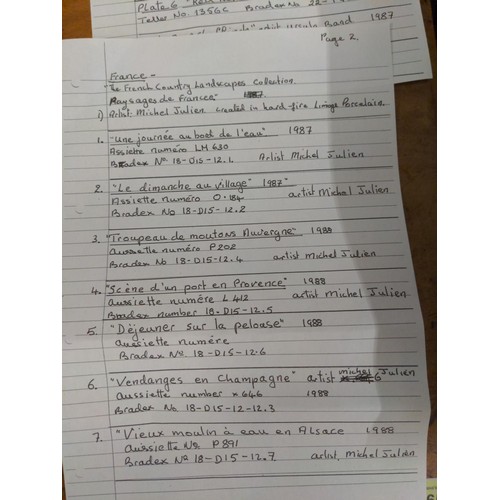 Plate 6
Teller No. 1356c Bradex No 22-
Band 1987
Page 2.
France -
"The French Country Landscapes Collection.
Paysages de France"
1) Artist Michel Julien created in hard-fire Limoge Porcelaine.
1. "Une journée au bord de l'eau" 1987
Assiette numéro LH 630
Bradex No 18-D15-12.1 Artist Michel Julien
2. "Le dimanche au village" 1987
Assiette numéro O.184 artist Michel Julien
Bradex No 18-D15-12.2
3. "Troupeau de moutons Auvergne" 1988
aussiette numéro P202
Bradex No 18-D15-12.4 artist Michel Julien
4. "Scène d'un port en Provence" 1988
aussiette numére L 412 artist Michel Julien
Bradex number 18-D15-12.5
5. "Déjeuner sur la pelouse" 1988
aussiette numéro
Bradex No. 18-D15-12.6
6. "Vendanges en Champagne" artist michel Julien
aussiette number x 646 1988
Bradex No 18-D15-12-12.3
7. "Vieux moulin à eau en Alsace 1988
aussiette No. P891
Bradex No 18-D15-12.7. artist, Michel Julien